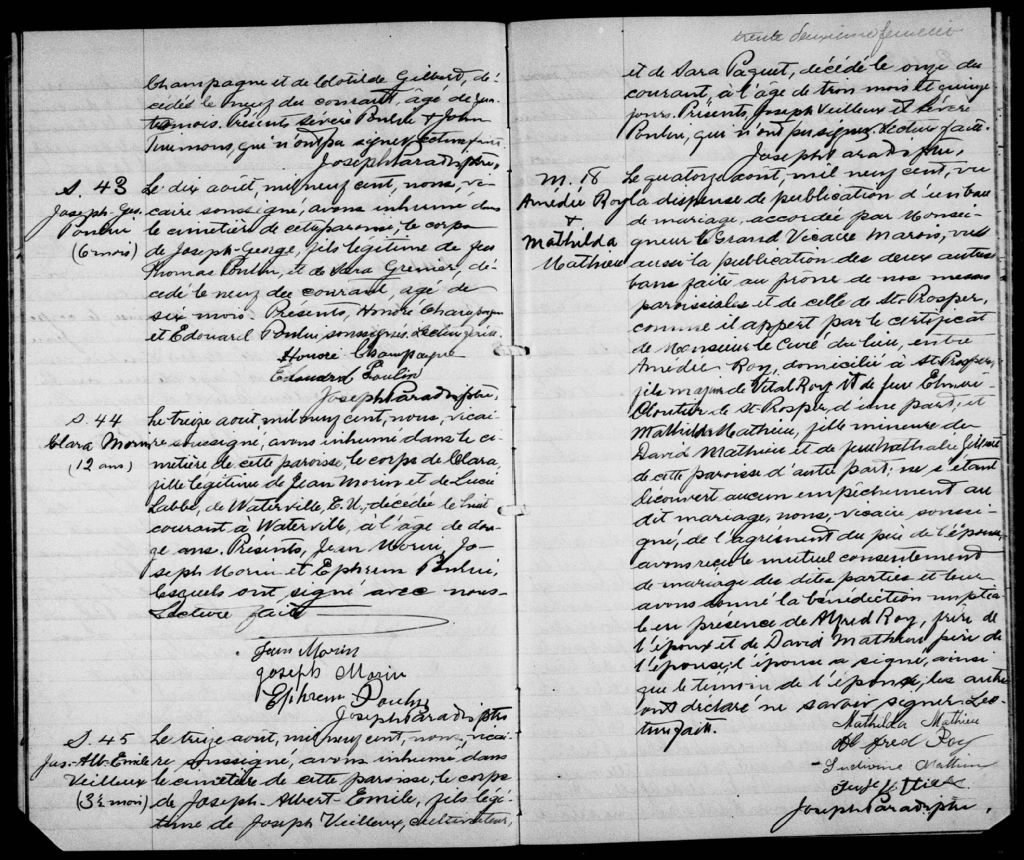 Champagne et de Clotilde Gilbert, dé-
cédés le neuf du courant, âgé de
mois. Présents Sévère Poulin & John
Timmons, qui n'ont pu signer. Lecture faite.
Joseph Paradis ptre,
S. 43
Joseph-Geo.
Poulin
(6 mois)
Le dix août, mil neuf cent, nous, vi-
caire soussigné, avons inhumé dans
le cimetière de cette paroisse, le corps
de Joseph-George, fils légitime de feu
Thomas Poulin, et de Sara Grenier, dé-
cédé le neuf du courant, agé de
six mois. Présents, Honoré Champagne
et Edouard Poulin soussignés. Lecture faite.
Honoré Champagne
Edouard Poulin
Joseph Paradis ptre,
S. 44
Clara Morin
(12 ans)
Le treize aout, mil neuf cent, nous, vicai-
re soussigné, avons inhumé dans le ci-
metière de cette paroisse, le corps de Clara,
fille légitime de Jean Morin et de Lucie
Labbé, de Waterville, E. U., décédée le huit
courant à Waterville, à l'age de dou-
ze ans. Présents, Jean Morin, Jo-
seph Morin et Ephrem Poulin,
lesquels ont signé avec nous.
Lecture faite
Jean Morin
Joseph Morin
Ephrem Poulin
Joseph Paradis ptre
S. 45
Jos-Alb-Emile
Veilleux
(3½ mois)
Le treize aout, mil neuf cent, nous, vicai-
re soussigné, avons inhumé dans
le cimetière de cette paroisse, le corps
de Joseph-Albert-Emile, fils légi-
time de Joseph Veilleux, cultivateur,
trente deuxième feuillet
et de Sara Paquet, décédé le onze du
courant, à l'âge de trois mois et quinze
jours. Présents, Joseph Veilleux et Sévère
Poulin, qui n'ont pu signer. Lecture faite.
Joseph Paradis ptre,
M. 18
Amédée Roy
&
Mathilda
Mathieu
Le quatorze août, mil neuf cent, vu
la dispense de publication d'un ban
de mariage, accordée par Monsei-
gneur le Grand Vicaire Marois, vu
aussi la publication des deux autres
bans faite au prône de nos messes
paroissiales et de celle de St-Prosper,
comme il appert par le certificat
de Monsieur le Curé du lieu, entre
Amédée Roy, domicilié à St-Prosper,
fils majeur de Vital Roy et de feu
Cloutier de St-Prosper, d'une part, et
Mathilda Mathieu, fille mineure de
David Mathieu et de feu Nathalie
de cette paroisse d'autre part; ne s'étant
découvert aucun empêchement au
dit mariage, nous, vicaire, soussi-
gné, de l'agrément du père de l'épouse,
avons reçu le mutuel consentement
de mariage des dites parties et leur
avons donné la bénédiction nuptia-
le en présence de Alfred Roy, frère de
l'époux et de David Mathieu père de
l'épouse; l'épouse a signé, ainsi
que le témoin de l'époux; les autres
ont déclaré ne savoir signer. Lec-
ture faite.
Mathilda Mathieu
Alfred Roy
Ludivine Mathieu
Joseph Paradis ptre,